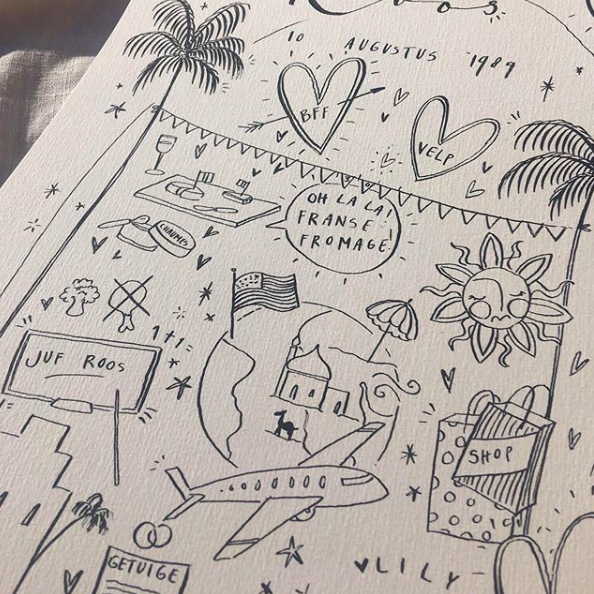 Roos
10 AUGUSTUS 1989
BFF
VELP
OH LA LA!
FRANSE
FROMAGE!
CHAUMES
1+1=
JUF ROOS
SHOP
GETUIGE
LILY